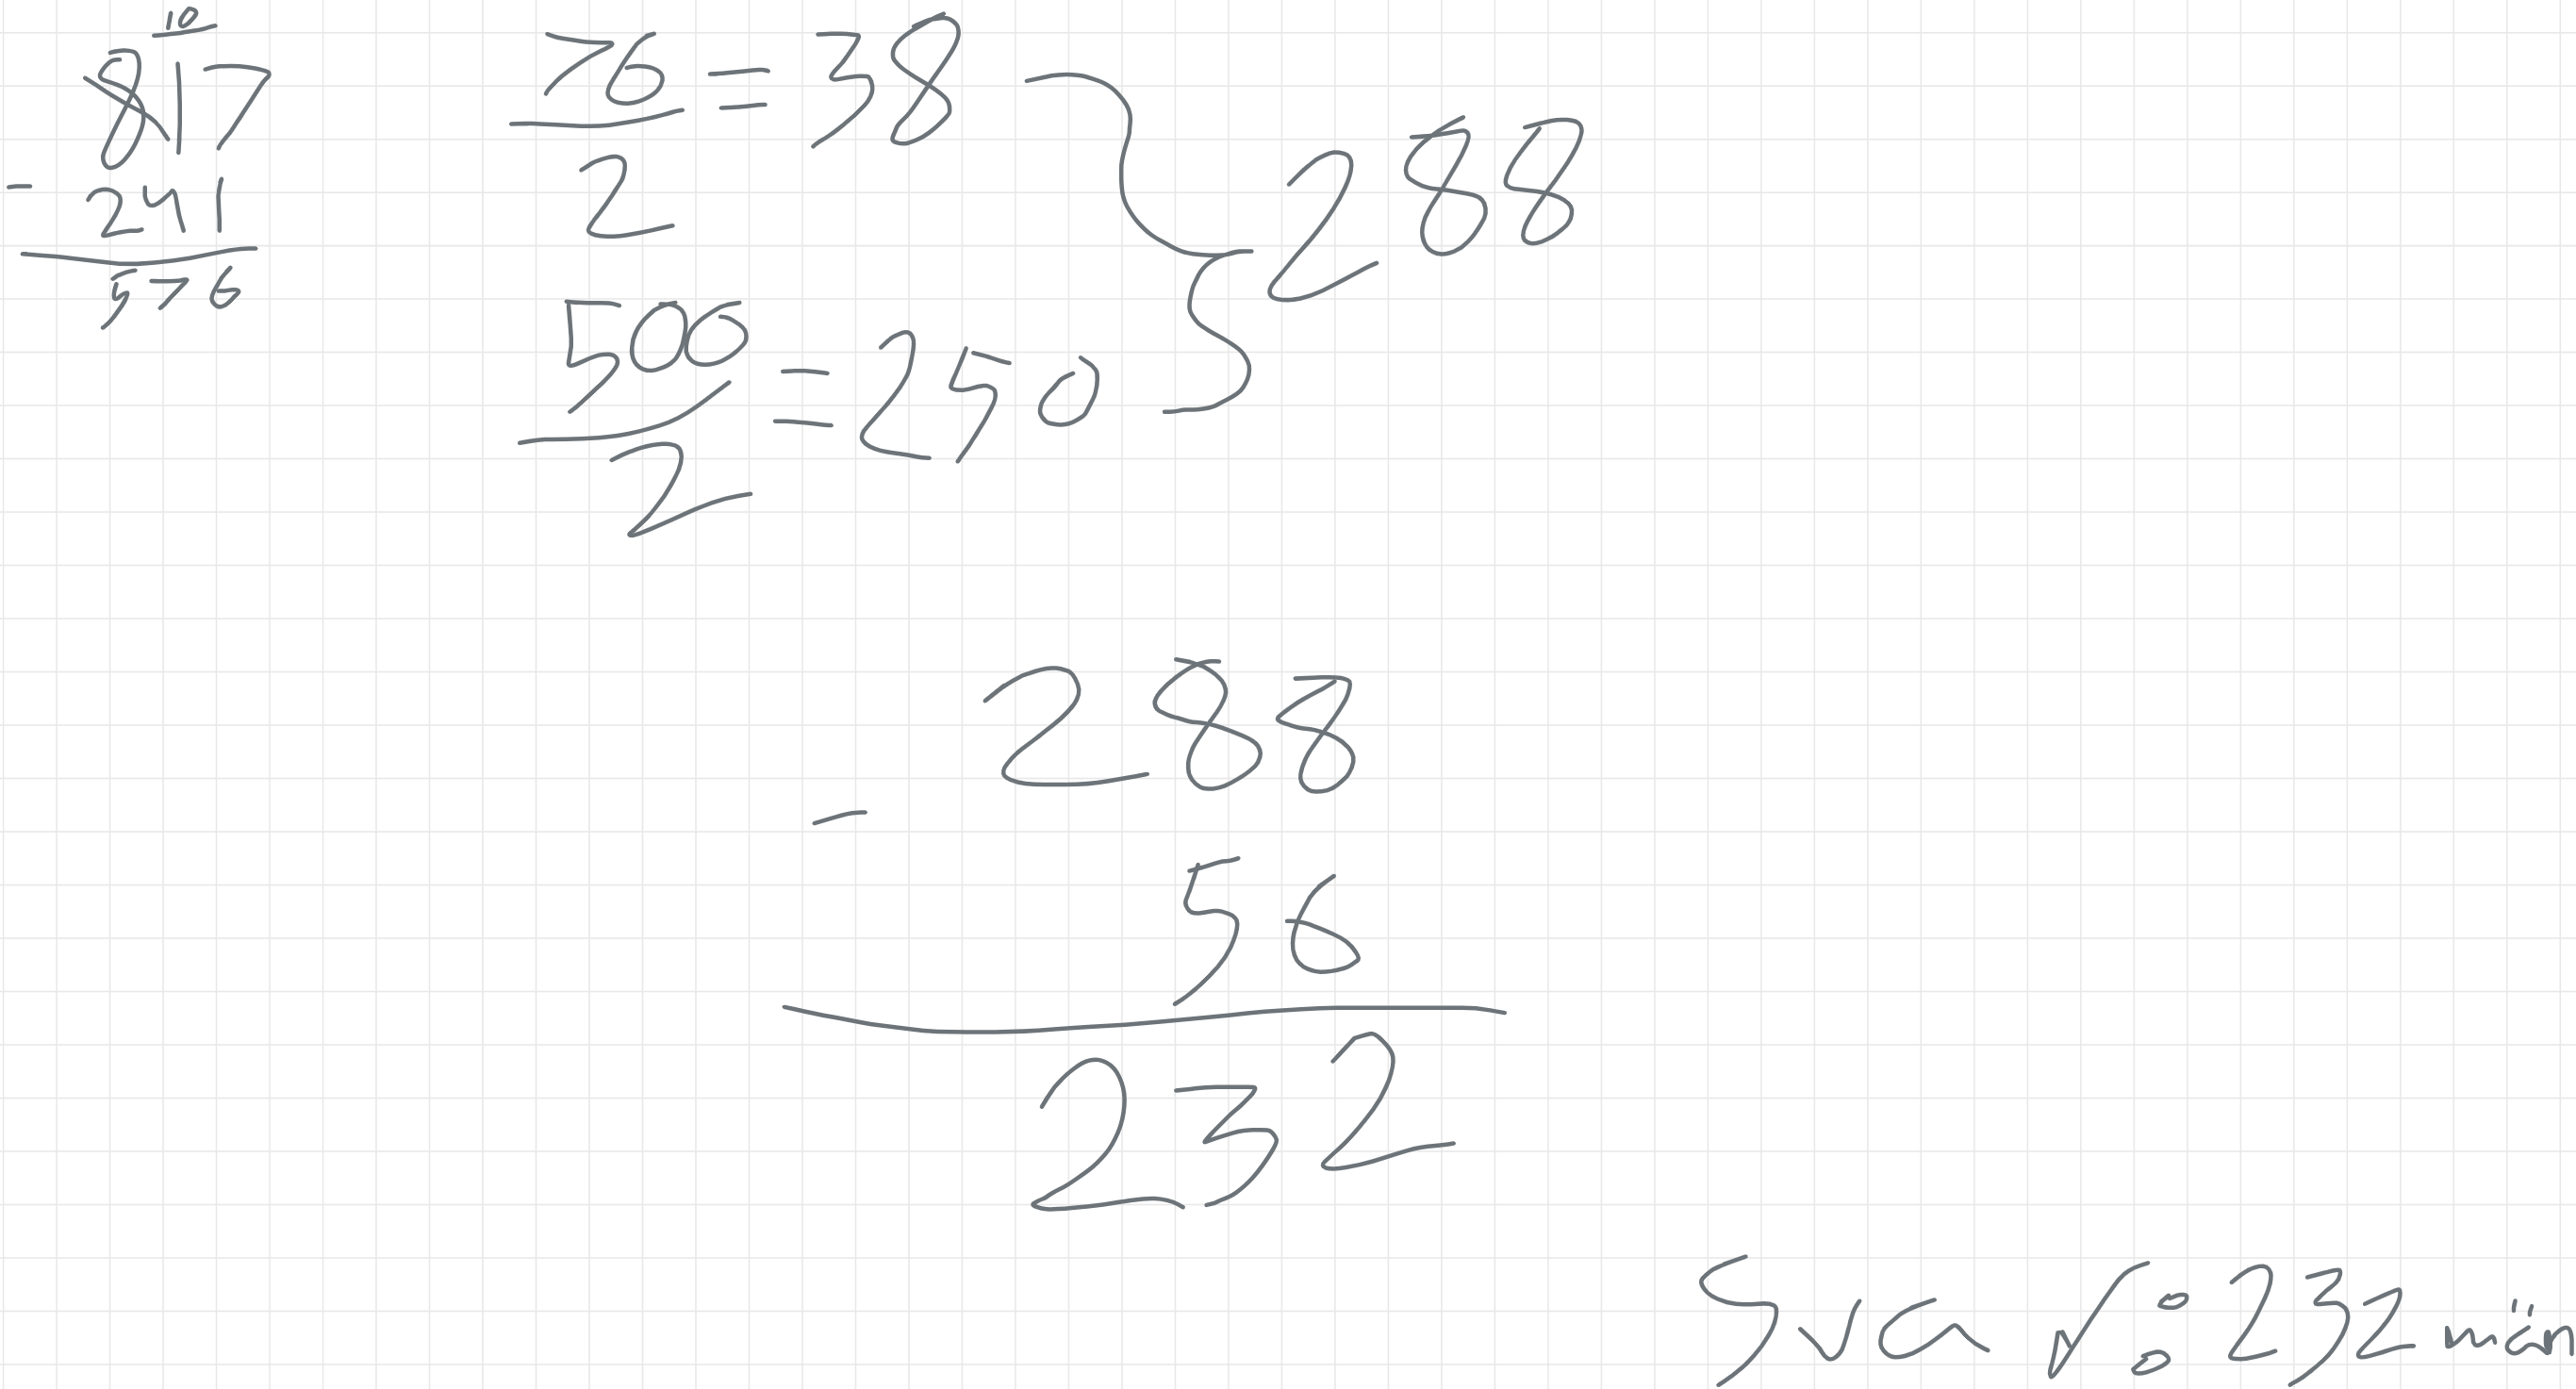 10
817
- 241
576
76 = 38
2
500 = 250
2
288
288
- 56
232
Svar: 232 män